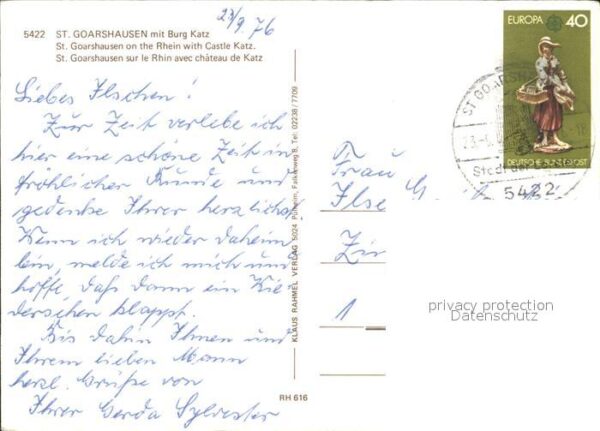 23/9. 76
5422 ST. GOARSHAUSEN mit Burg Katz
St. Goarshausen on the Rhein with Castle Katz.
St. Goarshausen sur le Rhin avec château de Katz
Liebes Ilschen!
Zur Zeit verlebe ich
hier eine schöne Zeit in
fröhlicher Runde und
gedenke Ihrer herzlichst
Wenn ich wieder daheim
bin, melde ich mich und
hoffe, daß dann ein Wie
dersehen klappt.
Bis dahin Ihnen und
Ihrem lieben Mann
herzl. Grüße von
Ihrer Gerda Sylvester
KLAUS RAHMEL VERLAG 5024 Pulheim, Falkenweg 8, Tel. 02238/7709
RH 616
EUROPA 40
DEUTSCHE BUNDESPOST
ST GOARSHA
5422
Frau
Ilse G
1
privacy protection
Datenschutz